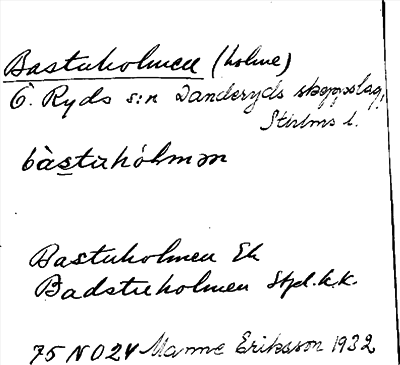 Bastuholmen (holme)
Ö. Ryds s:n Danderyds skeppslag,
Sthlms l.
bàstuhólmən
Bastuholmen Ek
Badstuholmen Sjd.k.k.
75 NO24 Manne Eriksson 1932